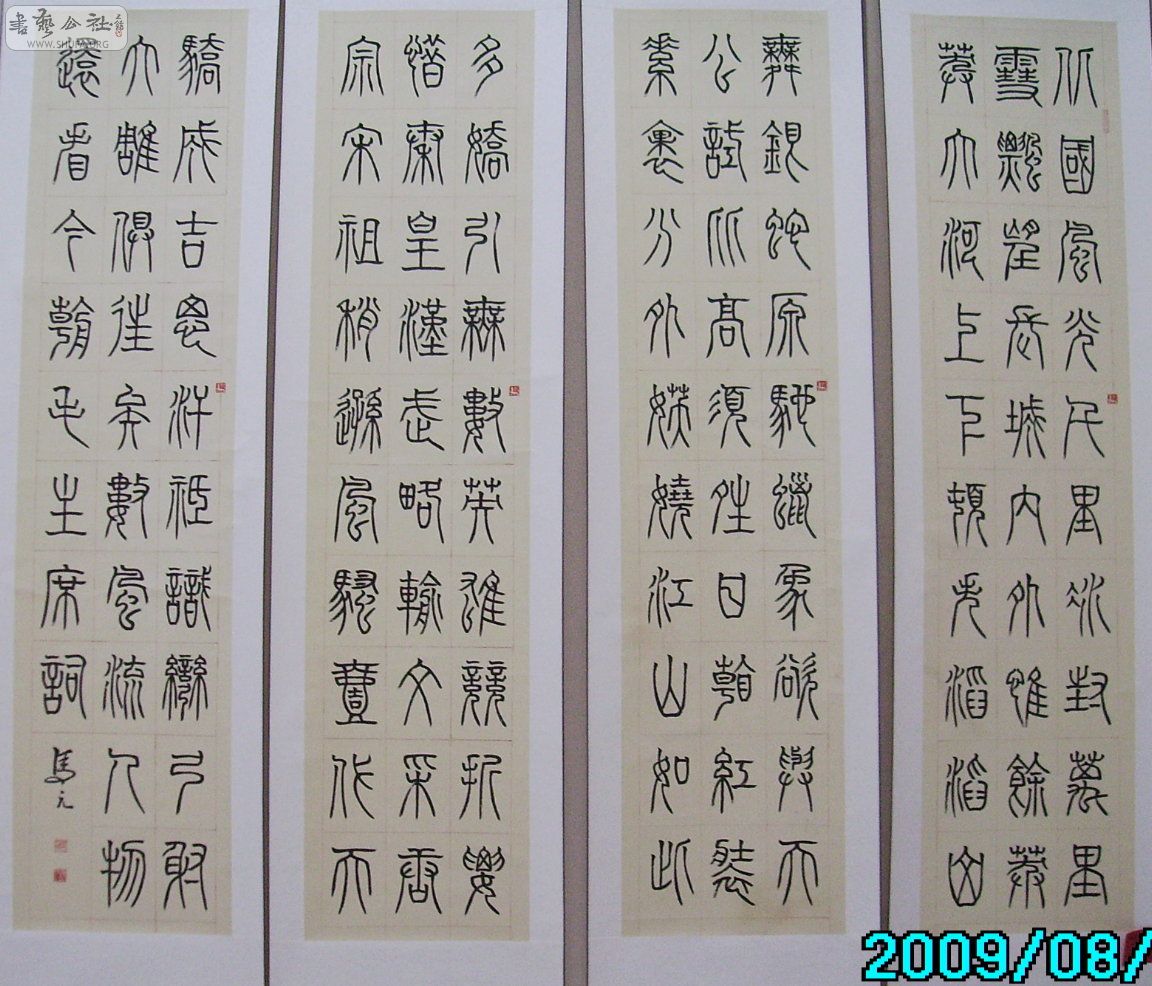 書藝公社
WWW.SHUFA.ORG
北國風光千里冰封萬里
雪飄望長城內外惟餘莽
莽大河上下頓失滔滔山
舞銀蛇原馳蠟象欲與天
公試比高須晴日看紅裝
素裹分外妖嬈江山如此
多嬌引無數英雄競折腰
惜秦皇漢武略輸文采唐
宗宋祖稍遜風騷壹代天
驕成吉思汗祗識彎弓射
大雕俱往矣數風流人物
還看今朝毛主席詞
馬元
2009/08/